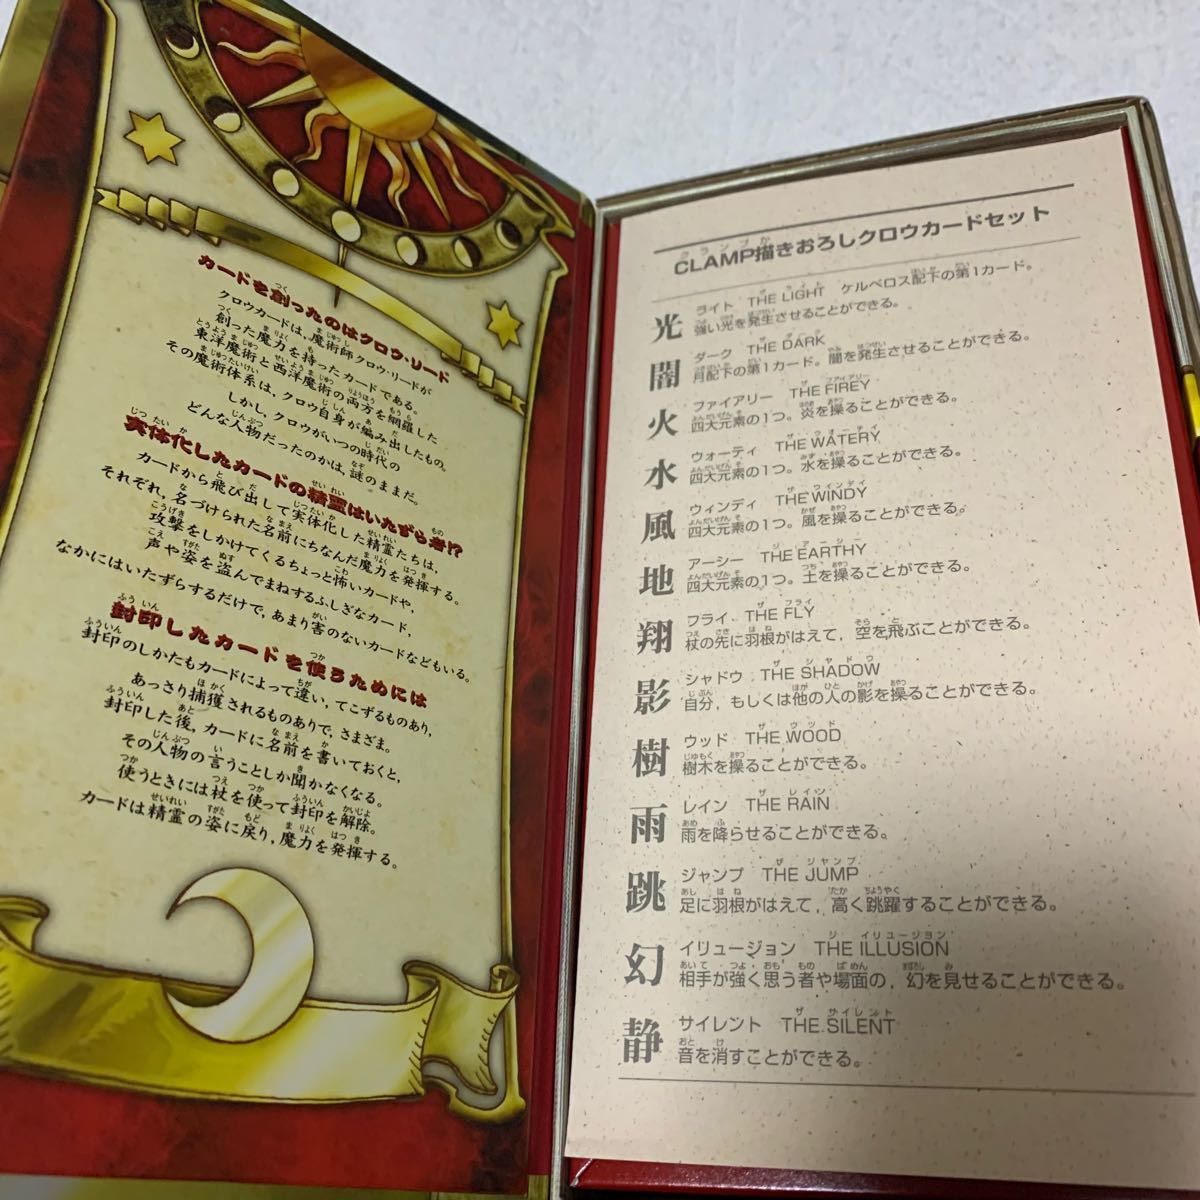 カードを創ったのはクロウ・リード
クロウカードは、魔術師クロウ・リードが
創った魔力を持ったカードである。
東洋魔術と西洋魔術の両方を網羅した
その魔術体系は、クロウ自身が編み出したもの。
しかし、クロウがいつの時代の
どんな人物だったのかは、謎のままだ。
実体化したカードの精霊はいたずら者!?
カードから飛び出して実体化した精霊たちは、
それぞれ、名づけられた名前にちなんだ魔力を発揮する。
攻撃をしかけてくるちょっと怖いカードや、
声や姿を盗んでまねするふしぎなカード、
なかにはいたずらするだけで、あまり害のないカードなどもいる。
封印したカードを使うためには
封印のしかたもカードによって違い、てこずるものあり、
あっさり捕獲されるものありで、さまざま。
封印した後、カードに名前を書いておくと、
その人物の言うことしか聞かなくなる。
使うときには杖を使って封印を解除。
カードは精霊の姿に戻り、魔力を発揮する。
CLAMP描きおろしクロウカードセット
光 ライト THE LIGHT ケルベロス配下の第1カード。
強い光を発生させることができる。
闇 ダーク THE DARK
月配下の第1カード。闇を発生させることができる。
火 ファイアリー THE FIREY
四大元素の1つ。炎を操ることができる。
水 ウォーティ THE WATERY
四大元素の1つ。水を操ることができる。
風 ウィンディ THE WINDY
四大元素の1つ。風を操ることができる。
地 アーシー THE EARTHY
四大元素の1つ。土を操ることができる。
翔 フライ THE FLY
杖の先に羽根がはえて、空を飛ぶことができる。
影 シャドウ THE SHADOW
自分、もしくは他の人の影を操ることができる。
樹 ウッド THE WOOD
樹木を操ることができる。
雨 レイン THE RAIN
雨を降らせることができる。
跳 ジャンプ THE JUMP
足に羽根がはえて、高く跳躍することができる。
幻 イリュージョン THE ILLUSION
相手が強く思う者や場面の、幻を見せることができる。
静 サイレント THE SILENT
音を消すことができる。